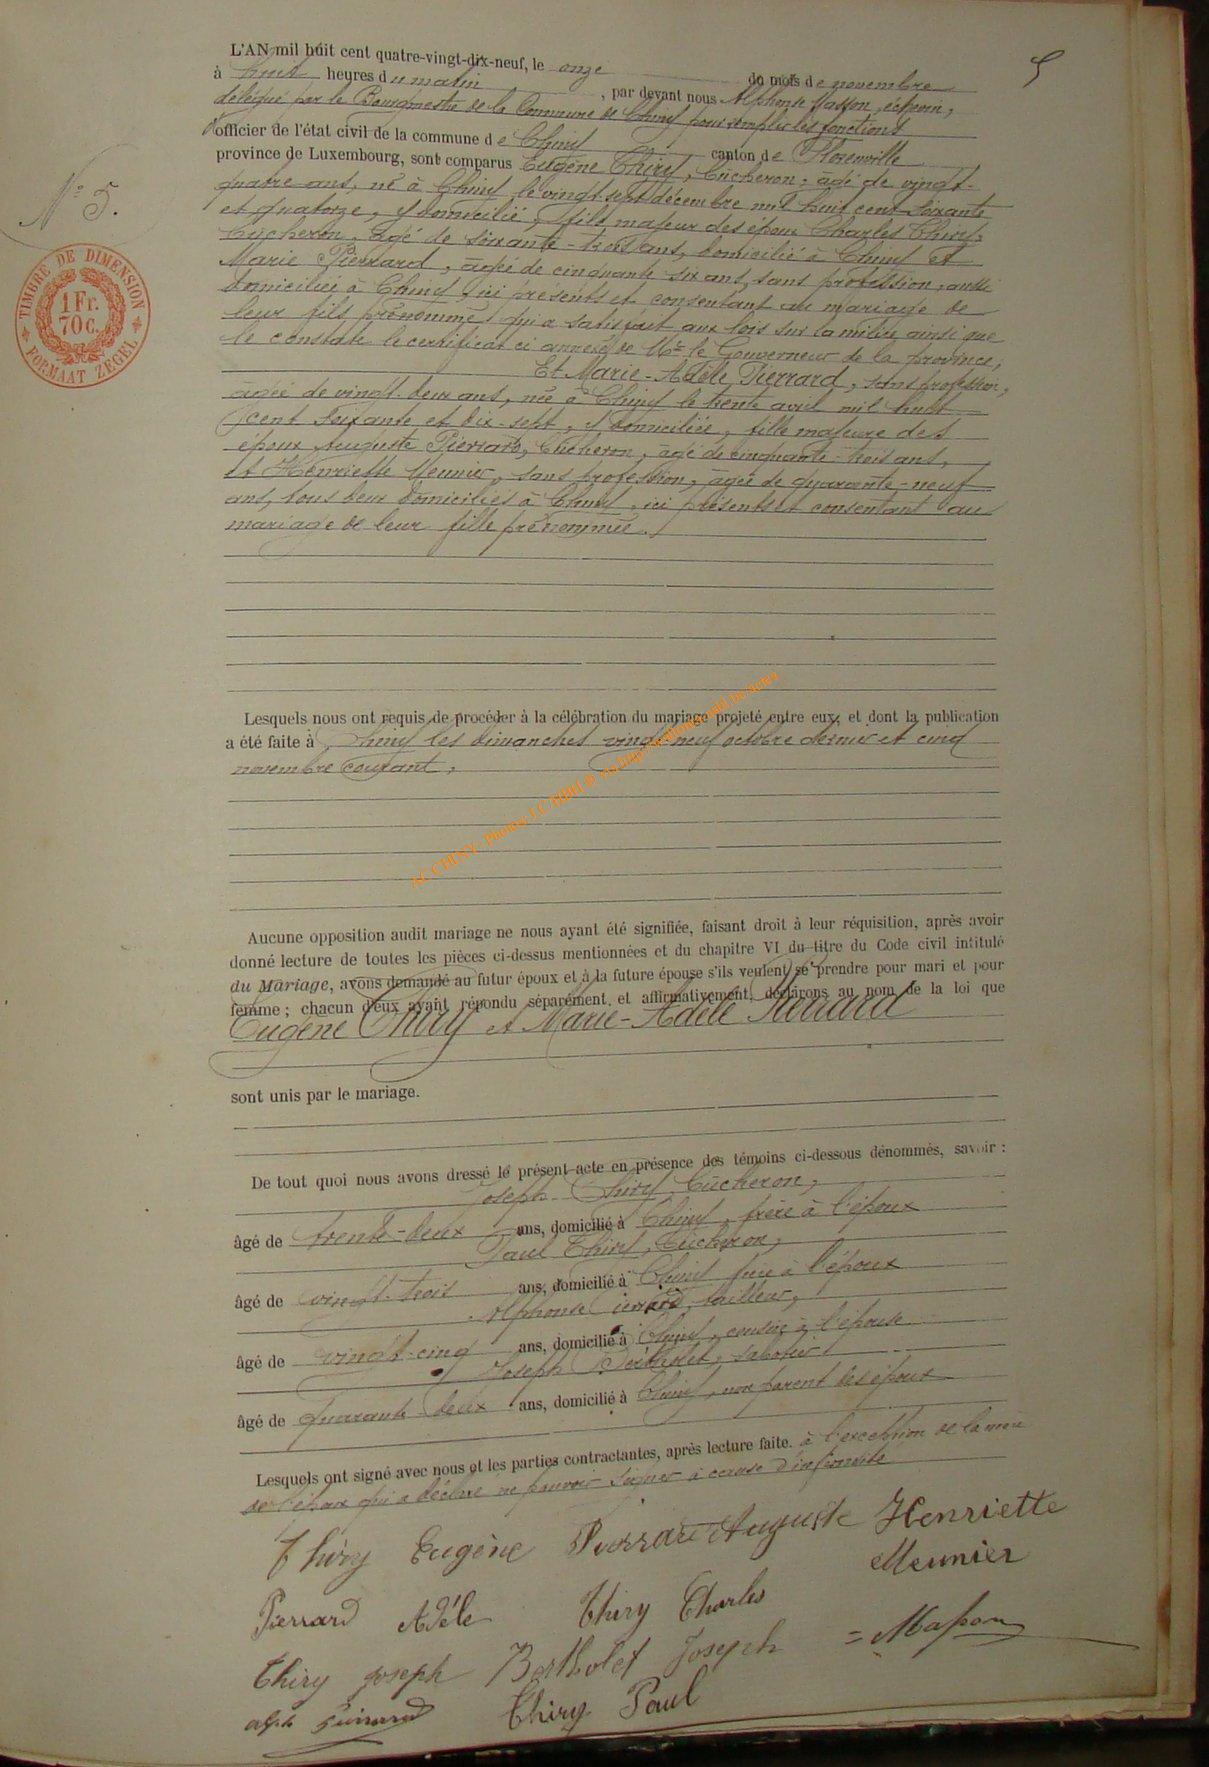 5
L'AN mil huit cent quatre-vingt-dix-neuf, le onze du mois de novembre
à huit heures du matin, par devant nous Alphonse Masson, échevin,
délégué par le Bourgmestre de la Commune de Chiny pour remplir les fonctions
d'officier de l'état civil de la commune de Chiny canton de Florenville
province de Luxembourg, sont comparus Eugène Thiry, bûcheron, âgé de vingt-
quatre ans, né à Chiny le vingt sept décembre mil huit cent soixante
et quatorze, y domicilié, fils majeur des époux Charles Thiry,
bûcheron, âgé de soixante-trois ans, domicilié à Chiny et
Marie Pierrard, âgée de cinquante six ans, sans profession, aussi
domiciliée à Chiny, ici présents et consentant au mariage de
leur fils prénommé qui a satisfait aux lois sur la milice ainsi que
le constate le certificat ci annexé de Mr le Gouverneur de la province,
Et Marie-Adèle Pierrard, sans profession,
âgée de vingt-deux ans, née à Chiny le trente avril mil huit
cent soixante et dix-sept, y domiciliée, fille majeure des
époux Auguste Pierrard, bûcheron, âgé de cinquante-trois ans,
et Henriette Meunier, sans profession, âgée de quarante-neuf
ans, tous deux domiciliés à Chiny, ici présents et consentant au
mariage de leur fille prénommée.
N° 5.
TIMBRE DE DIMENSION
1 Fr.
70 c.
FORMAAT ZEGEL
Lesquels nous ont requis de procéder à la célébration du mariage projeté entre eux, et dont la publication
a été faite à Chiny les dimanches vingt-neuf octobre dernier et cinq
novembre courant,
Aucune opposition audit mariage ne nous ayant été signifiée, faisant droit à leur réquisition, après avoir
donné lecture de toutes les pièces ci-dessus mentionnées et du chapitre VI du titre du Code civil intitulé
du Mariage, avons demandé au futur époux et à la future épouse s'ils veulent se prendre pour mari et pour
femme ; chacun d'eux ayant répondu séparément et affirmativement, déclarons au nom de la loi que
Eugène Thiry et Marie-Adèle Pierrard
sont unis par le mariage.
De tout quoi nous avons dressé le présent acte en présence des témoins ci-dessous dénommés, savoir :
Joseph Thiry, bûcheron,
âgé de trente-deux ans, domicilié à Chiny, frère à l'époux
Paul Thiry, bûcheron,
âgé de vingt-trois ans, domicilié à Chiny frère à l'époux
Alphonse Pierrard, tailleur,
âgé de vingt-cinq ans, domicilié à Chiny, cousin à l'épouse
Joseph Bertholet, sabotier
âgé de quarante-deux ans, domicilié à Chiny, non parent des époux
Lesquels ont signé avec nous et les parties contractantes, après lecture faite. à l'exception de la mère
de l'époux qui a déclaré ne pouvoir signer à cause d'infirmité
Thiry Eugène Pierrard Auguste Henriette
Meunier
Pierrard Adèle Thiry Charles
Thiry Joseph Bertholet Joseph = Masson
alph Pierrard Thiry Paul